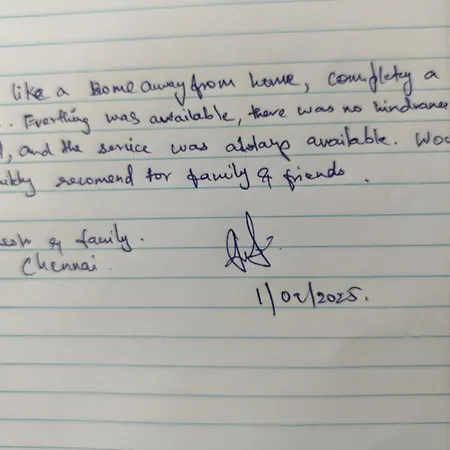 like a Home away from home, completly a
.. Everthing was available, there was no hindrance
, and the service was always available. Wou
recomend for family & friends.
esh & family.
Chennai.
1/02/2025.